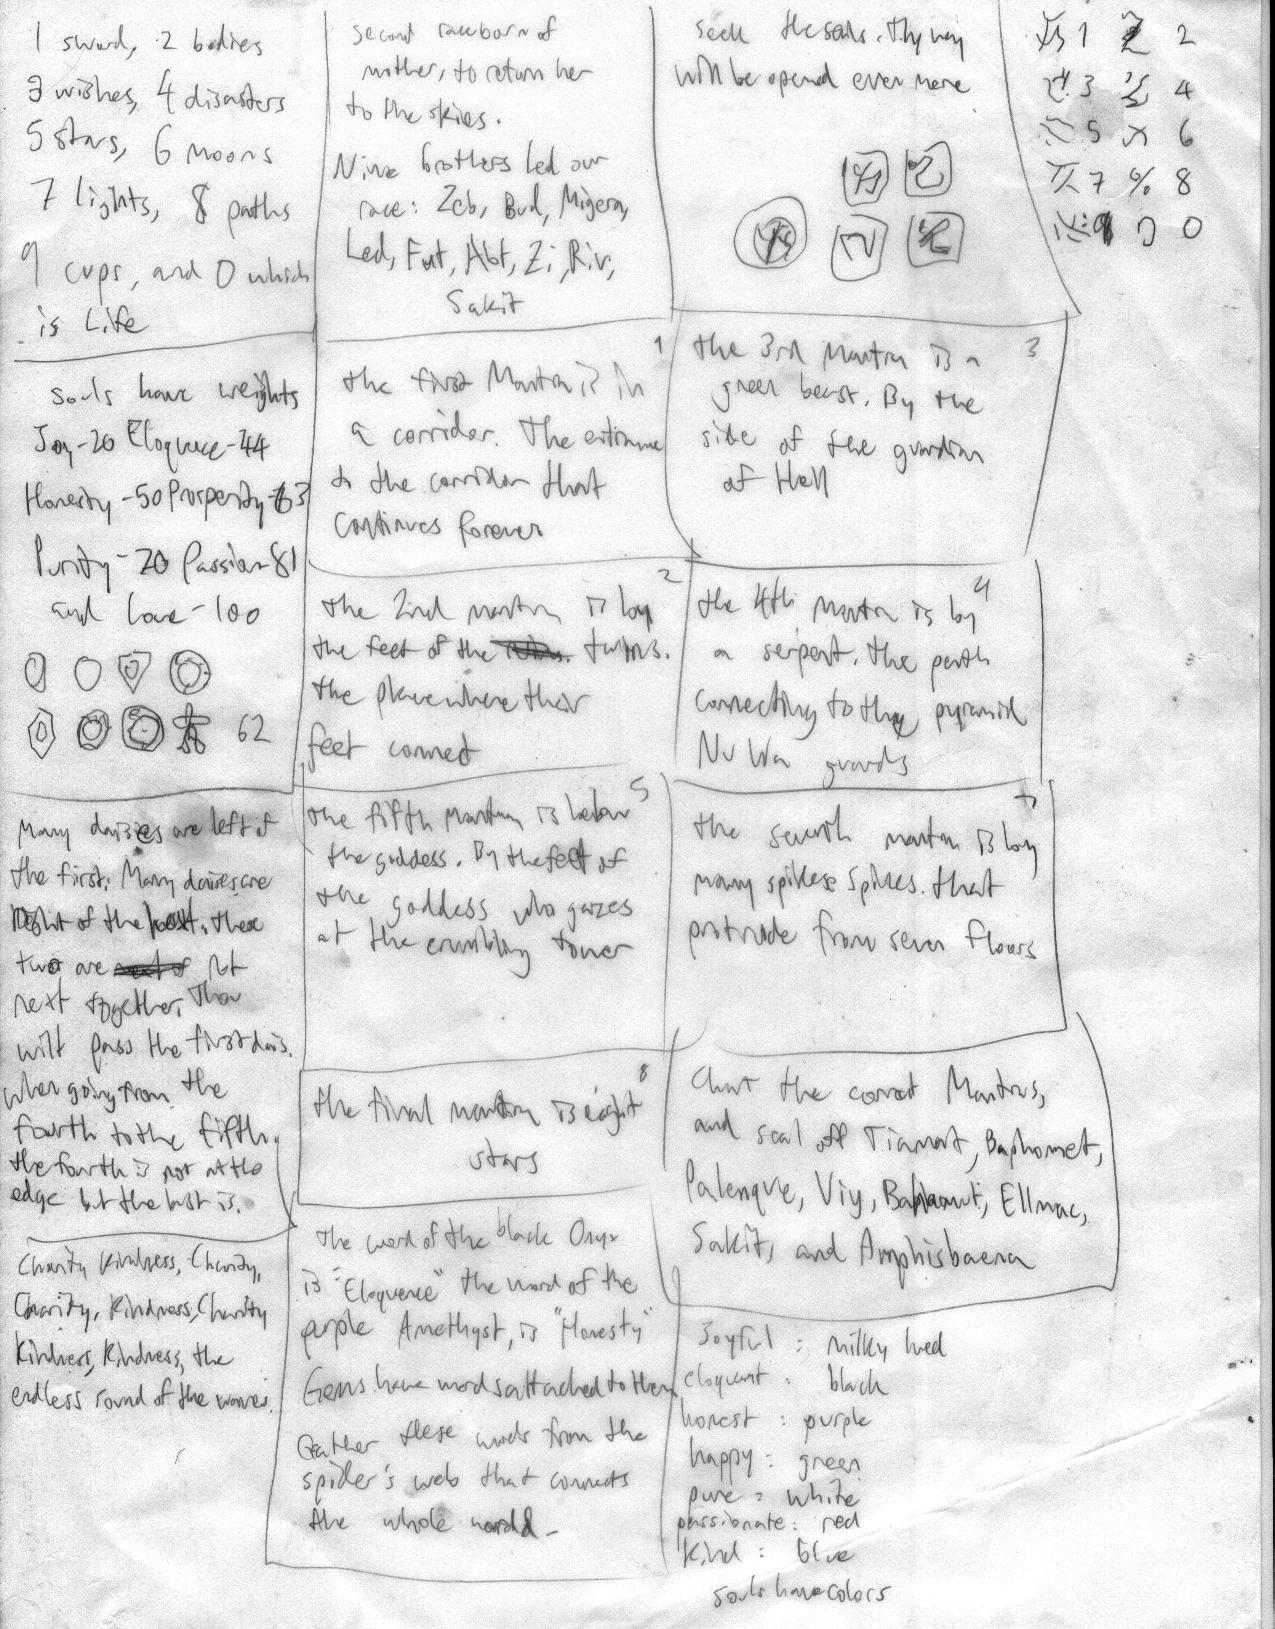 1 sword, 2 bodies
3 wishes, 4 disasters
5 stars, 6 moons
7 lights, 8 paths
9 cups, and 0 which
is Life
souls have weights
Joy-20 Eloquence-44
Honesty-50 Prosperity-63
Purity-20 Passion-81
and love-100
62
Many daises are left of
the first. Many daises are
Right of the last. These
two are not
next together, Thou
wilt pass the first dais.
when going from the
fourth to the fifth.
the fourth is not at the
edge but the last is.
Charity Kindness, Charity,
Charity, Kindness, Charity
Kindness, Kindness, the
endless round of the waves.
second race born of
mother, to return her
to the skies.
Nine brothers led our
race: Zeb, Bud, Migera,
Led, Fut, Abt, Zi, Riv,
Sakit
1
the first Mantra is in
a corridor. The entrance
to the corridor that
continues forever
2
the 2nd mantra is by
the feet of the twins.
the place where their
feet connect
5
the fifth Mantra is below
the goddess. By the feet of
the goddess who gazes
at the crumbling tower
8
the final mantra is eight
stars
The word of the black Onyx
is "Eloquence" the word of the
purple Amethyst, is "Honesty"
Gems have words attached to them
Gather these words from the
spider's web that connects
the whole world-
seek the seals. Thy way
will be opened ever more
3
the 3rd Mantra is a
green beast. By the
side of the guardian
of Hell
4
the 4th Mantra is by
a serpent. the path
connecting to the pyramid
Nu Wa guards
7
the seventh mantra is by
many spikes. Spikes. that
protrude from seven floors
Chant the correct Mantras,
and seal off Tiamat, Baphomet,
Palenque, Viy, Bahamut, Ellmac,
Sakit, and Amphisbaena
Joyful : milky hued
eloquent : black
honest : purple
happy : green
pure : white
passionate : red
Kind : blue
souls have colors
1 2
3 4
5 6
7 8
9 0